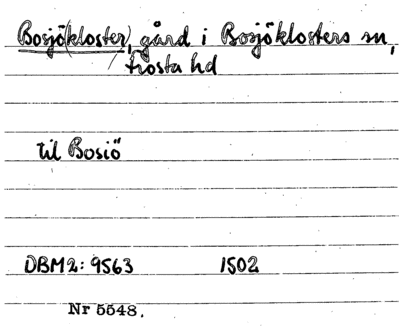 Bosjö(kloster), gård i Bosjöklosters sn,
Frosta hd
til Bosiö
DBM2: 9563 1502
Nr 5548.